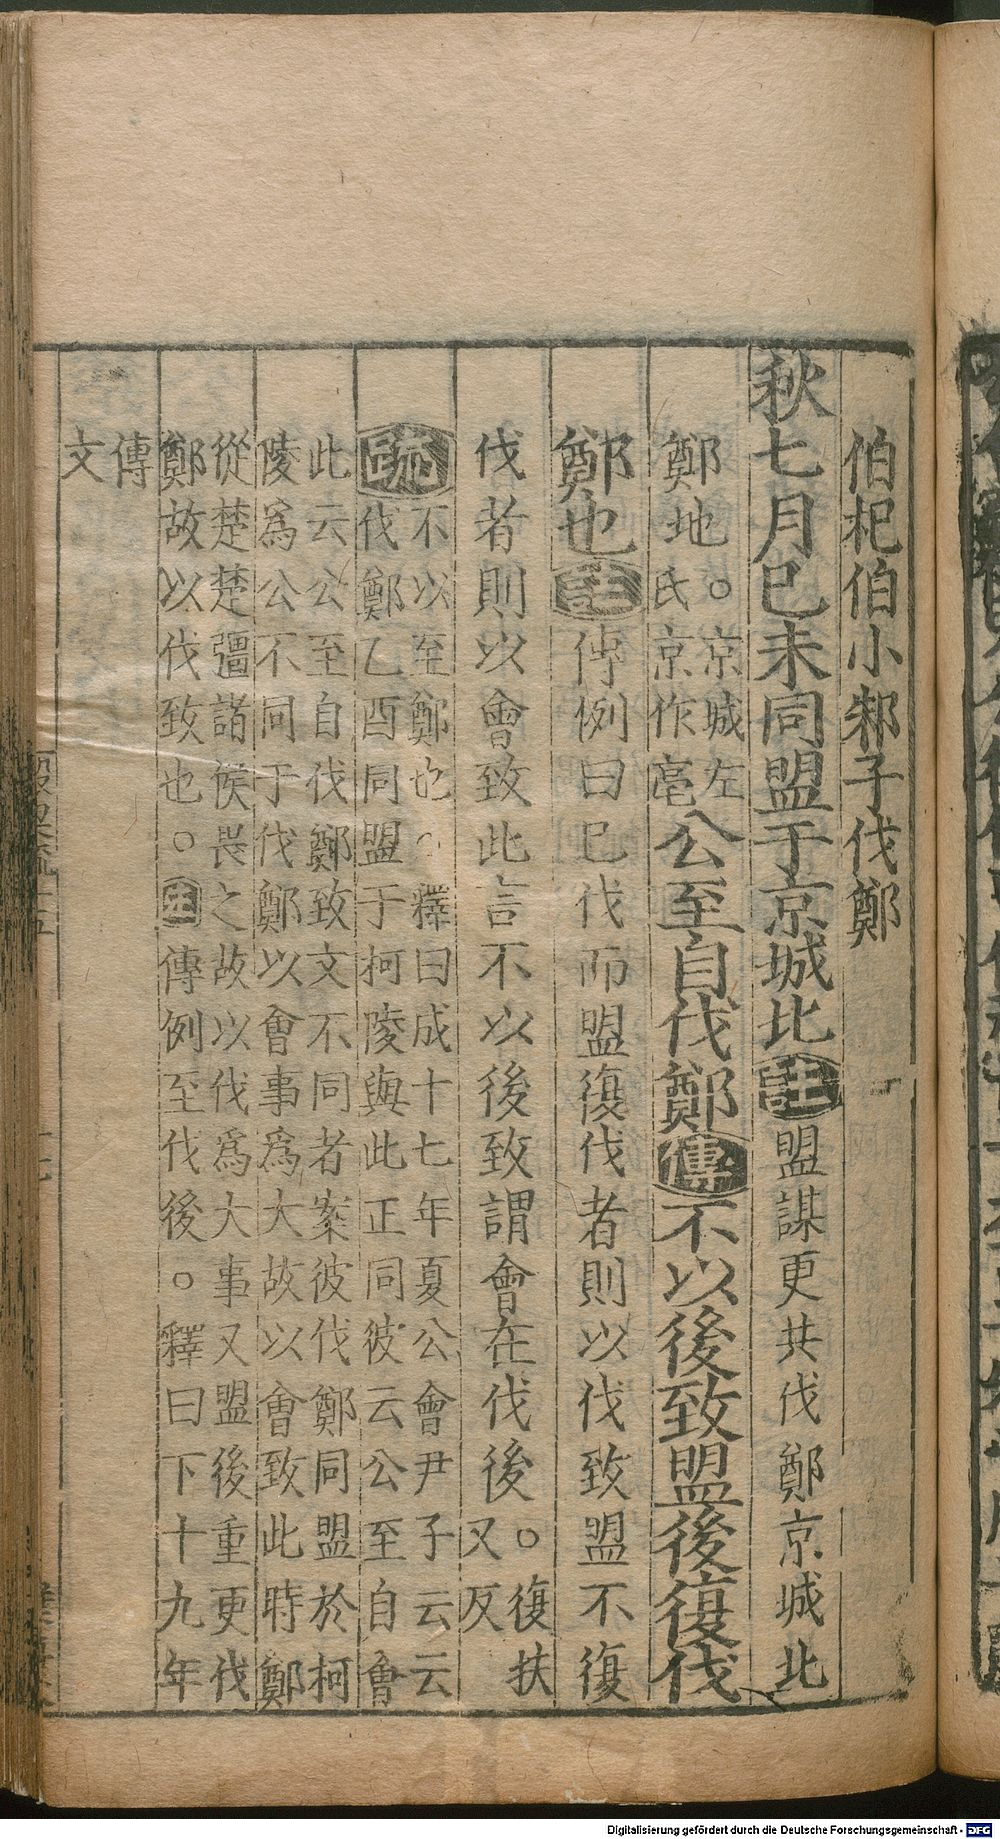 伯杞伯小邾子伐鄭
秋七月巳未同盟于京城北註盟謀更共伐鄭京城北
鄭地。京城左氏京作亳公至自伐鄭傳不以後致盟後復伐
鄭也註傳例曰巳伐而盟復伐者則以伐致盟不復
伐者則以會致此言不以後致謂會在伐後。復扶又反
疏不以至鄭也。釋曰成十七年夏公會尹子云云
伐鄭乙酉同盟于柯陵與此正同彼云公至自會
此云公至自伐鄭致文不同者案彼伐鄭同盟於柯
陵爲公不同于伐鄭以會事爲大故以會致此時鄭
從楚楚彊諸侯畏之故以伐爲大事又盟後重更伐
鄭故以伐致也。註傳例至伐後。釋曰下十九年
傳
文
Digitalisierung gefördert durch die Deutsche Forschungsgemeinschaft - DFG